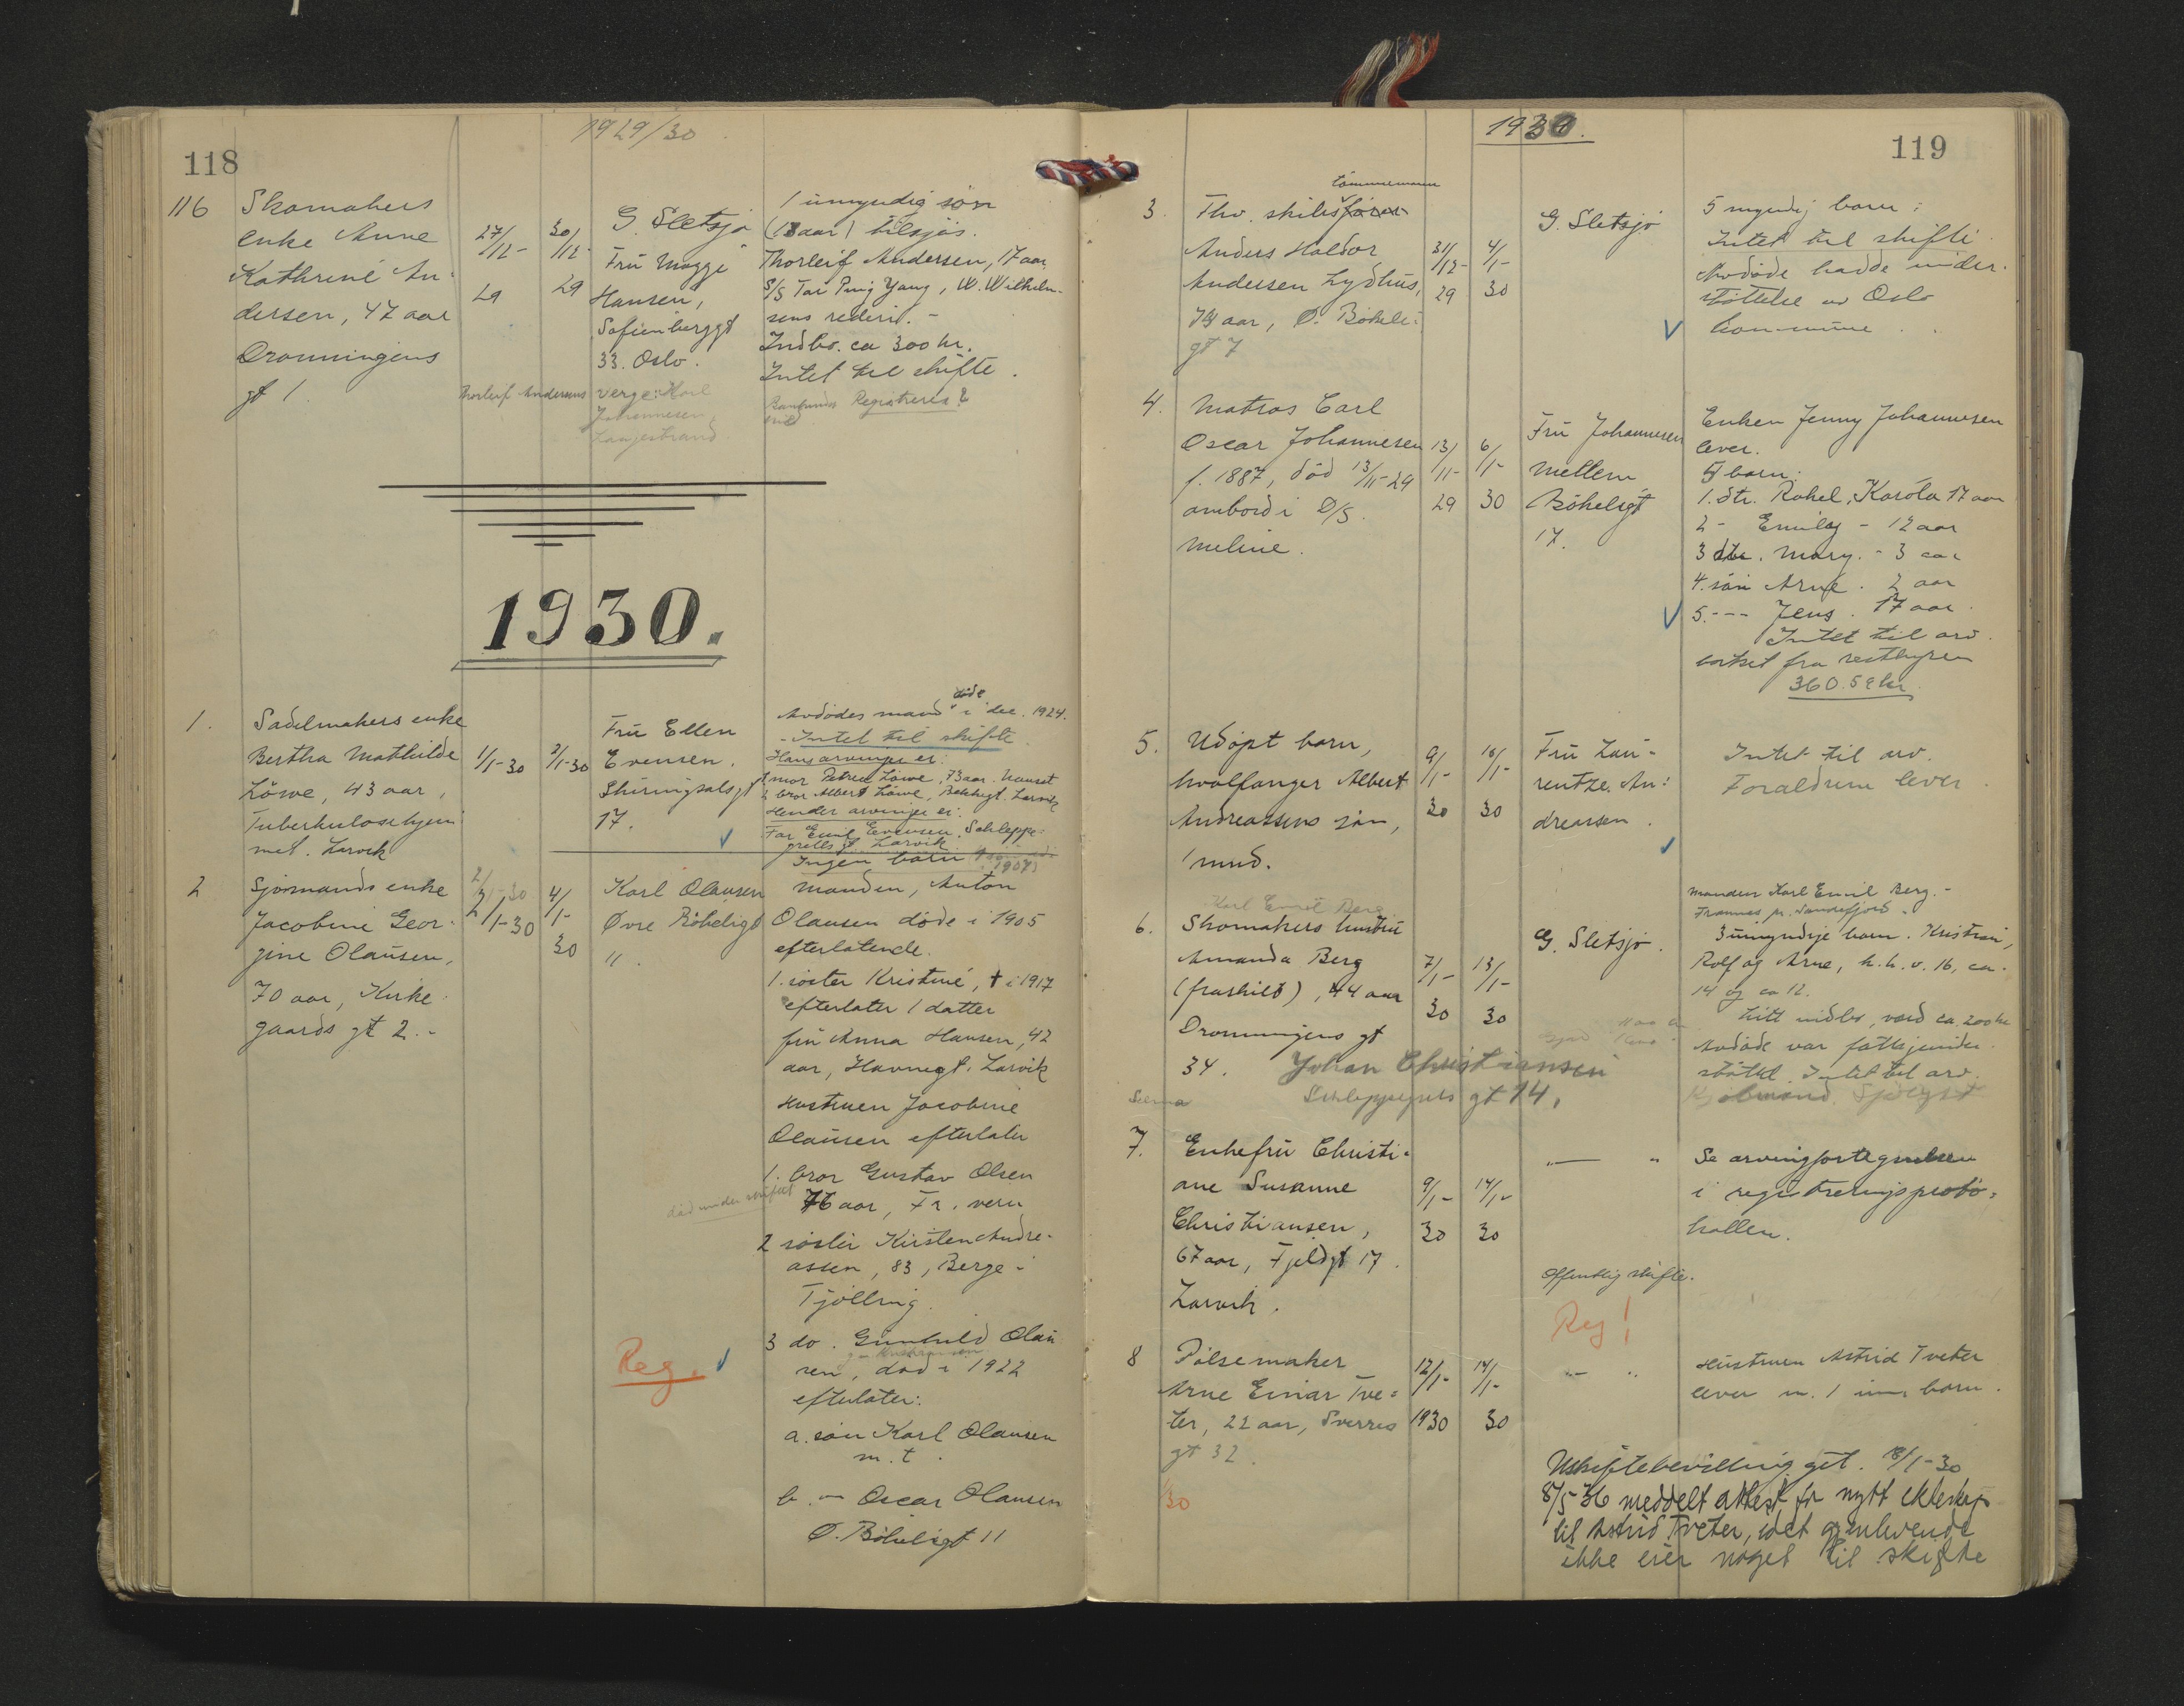 118
1929/30
116
Skomakers
enke Anne
Kathrine An-
dersen, 47 aar
Dronningens
gt 1.
27/12-
29
30/12-
29
G. Sletsjø
Fru Maggi
Hansen,
Sofienberggt
33. Oslo.
Thorleif Andersens verge: Karl
Johannesen,
Langestrand.
1 umyndig søn
(18 aar) tilsjøs.
Thorleif Andersen, 17 aar,
S/S Tai Ping Yang, W. Wilhelm-
sens rederi. -
Indbo. ca 300 kr.
Intet til skifte.
Registreres?
1930.
1.
Sadelmakers enke
Bertha Mathilde
Löwe, 43 aar,
Tuberkulosehjem
met. Larvik
1/1-30
2/1-30
Fru Ellen
Evensen.
Skiringsalsgt
17.
døde
Avdødes mand i dec. 1924.
- Intet til skifte
Hans arvinger er:
1 mor Petrea Löwe, 73 aar. Nanset
2 bror Albert Löwe, Bøkkegt. Larvik
Hendes arvinger er:
Far Emil Evensen, Schleppe-
grells gt. Larvik
Ingen barn
1907)
2
Sjømands enke
Jacobine Geor-
gine Olausen,
70 aar, Kirke
gaards gt 2.-
2/1-30
2/1-30
4/1-
30
Karl Olausen
Øvre Bøkeligt
11.
manden, Anton
Olausen døde i 1905
efterlatende.
1. søster Kristine, † i 1917
efterlater 1 datter
fru Anna Hansen, 42
aar, Havnegt. Larvik
Hustruen Jacobine
Olausen efterlater
1. bror Gustav Olsen
død under skiftet
76 aar, Fr. vern
2 søster Kirsten Andre-
assen, 83, Berge i
Tjølling.
3 do. Gunhild Olau
sen, død i 1922
efterlater:
a. søn Karl Olausen
m. t.
b. - Oscar Olausen
Ø. Bøkeligt 11
Reg.
119
1930.
3.
tømmermann
Fhv. skibsfører
Anders Haldor
Andersen Lydhus,
74 aar, Ø. Bøkeli-
gt 7
31/12-
29
4/1-
30
G. Sletsjø
5 myndig barn:
Intet til skifte
Avdøde hadde under-
støttelse av Oslo
kommune.
4.
Matros Carl
Oscar Johannesen
f. 1887, død 13/11-29
ombord i D/S.
Meline.
13/11-
29
6/1-
30
Fru Johannesen
Mellem
Bøkeligt
17.
Enken Jenny Johannesen
lever.
5 barn:
1. dtr. Rakel, Karola 17 aar
2 - Emily - 12 aar
3 dtr. Mary. - 3 aar
4. søn Arne. 2 aar
5. --- Jens. 17 aar.
Intet til arv.
bortset fra resthyren
360.59 kr.
5.
Udøpt barn,
hvalfanger Albert
Andreassens søn,
1 mnd.
9/1-
30
10/1-
30
Fru Lau-
rentze An-
dreassen.
Intet til arv.
Forældrene lever
Karl Emil Berg
6.
Skomakers hustru
Amanda Berg
(fraskilt), 44 aar
Dronningens gt
34.
7/1-
30
13/1-
30
G. Sletsjø.
manden Karl Emil Berg.-
Framnes pr. Sandefjord.
3 umyndige barn. Kristian,
Rolf og Arne, h.h.v. 16, ca.
14 og ca 12.
Litt indbo, værd ca. 200 kr
Avdøde var fattigunder-
støttet. Intet til arv.
Johan Christiansen
Schleppegrells gt 14,
7.
Enkefru Christi-
ane Susanne
Christiansen,
67 aar, Fjeldgt 17.
Larvik.
9/1-
30
14/1-
30
-"- "
Se arvingfortegnelsen
i registreringsproto-
kollen.
Offentlig skifte.
Reg!
8
Pølsemaker
Arne Einar Tve-
ter, 22 aar, Sverres
gt 32.
30
12/1-
1930
14/1-
30
-"- "
Hustruen Astrid Tveter
lever m. 1 um. barn.
Uskiftebevilling get. 18/1-30
8/5-36 meddelt attest for nytt ekteskap
til Astrid Tveter, idet gjenlevende
ikke eier noget til skifte